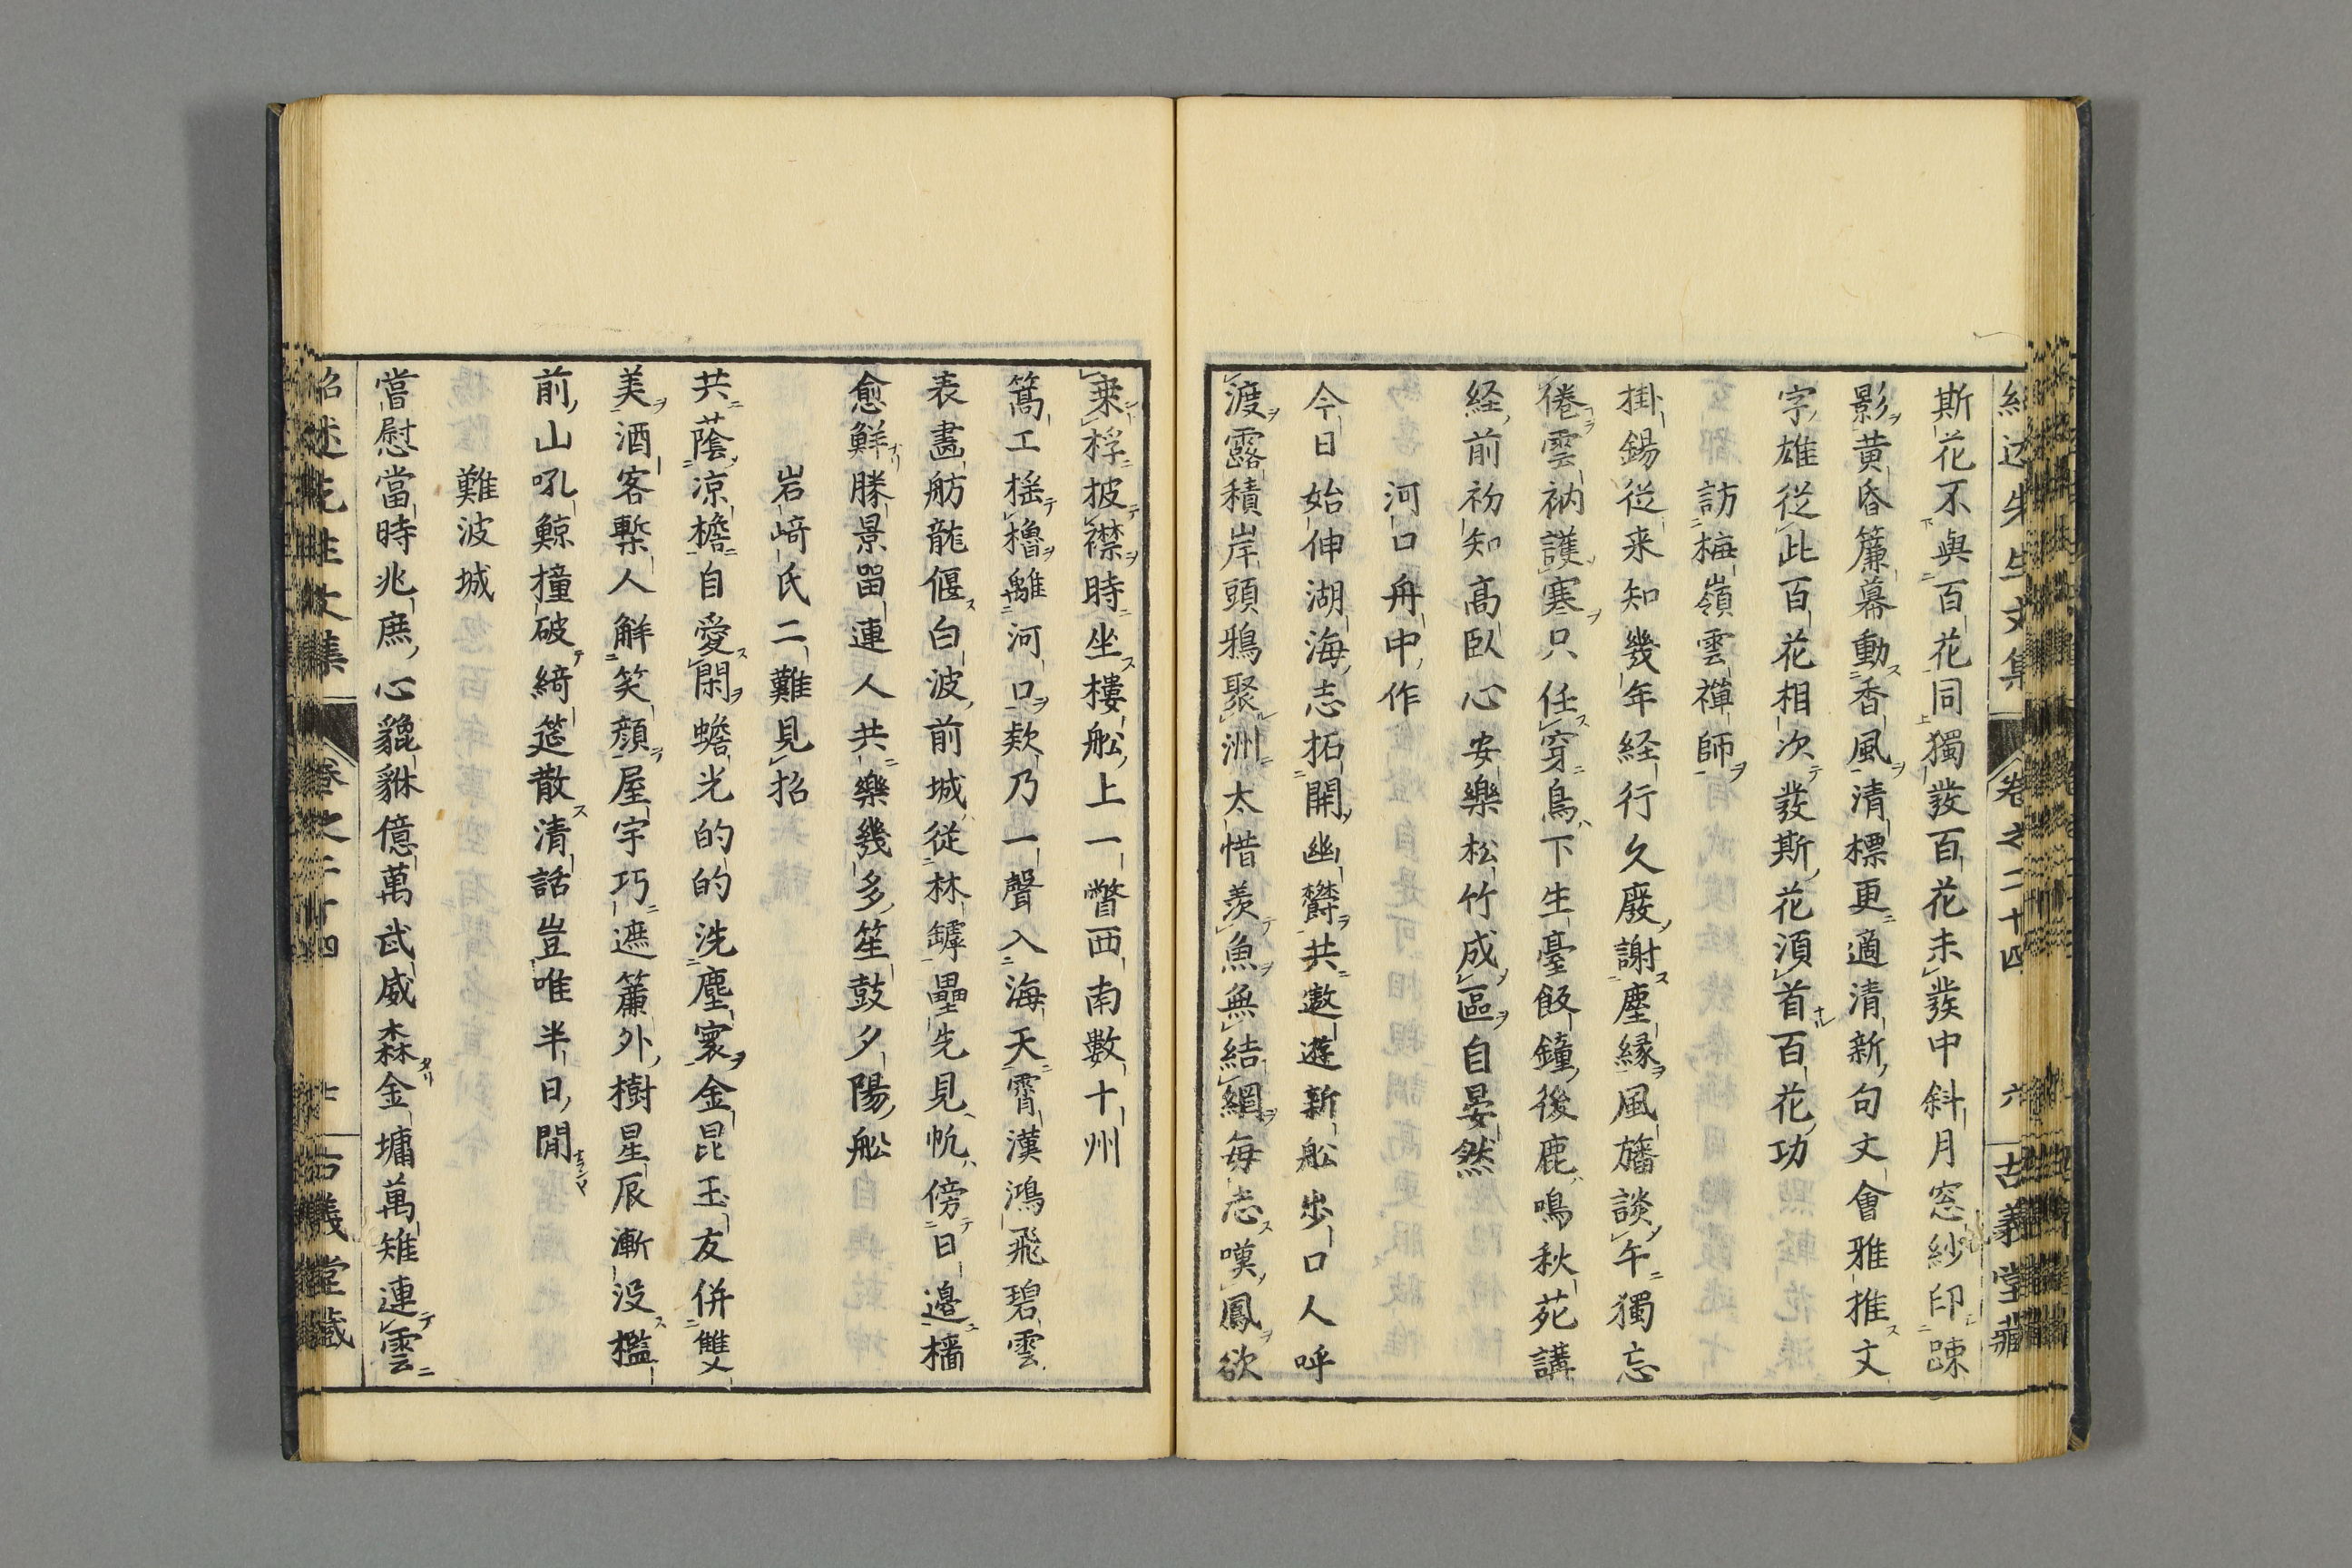 斯花不與百花同獨發百花未發中斜月窓紗印踈
影黄昏簾幕動香風清標更適清新句文會雅推文
字雄従此百花相次發斯花須首百花功
訪梅嶺雲禪師
掛錫従来知幾年経行久廢謝塵縁風旛談午獨忘
倦雲衲護寒只任穿鳥下生臺飯鐘後鹿鳴秋苑講
経前初知高臥心安樂松竹成區自晏然
河口舟中作
今日始伸湖海志拓開幽欝共遨遊新舩出口人呼
渡露積岸頭鴉聚洲太惜羨魚無結網毎志嘆鳳欲
乗桴披襟時坐樓舩上一瞥西南數十州
篙工揺櫓離河口欵乃一聲入海天霄漢鴻飛碧雲
表畫舫龍偃白波前城従林罅壘先見帆傍日邊檣
愈鮮勝景畱連人共樂幾多笙鼓夕陽舩
岩﨑氏二難見招
共蔭凉檐自愛閑蟾光的的洗塵寰金昆玉友併雙
美酒客槧人解笑顔屋宇巧遮簾外樹星辰漸没檻
前山吼鯨撞破綺筵散清話豈唯半日閒
難波城
當慰當時兆庶心貔貅億萬武威森金墉萬雉連雲